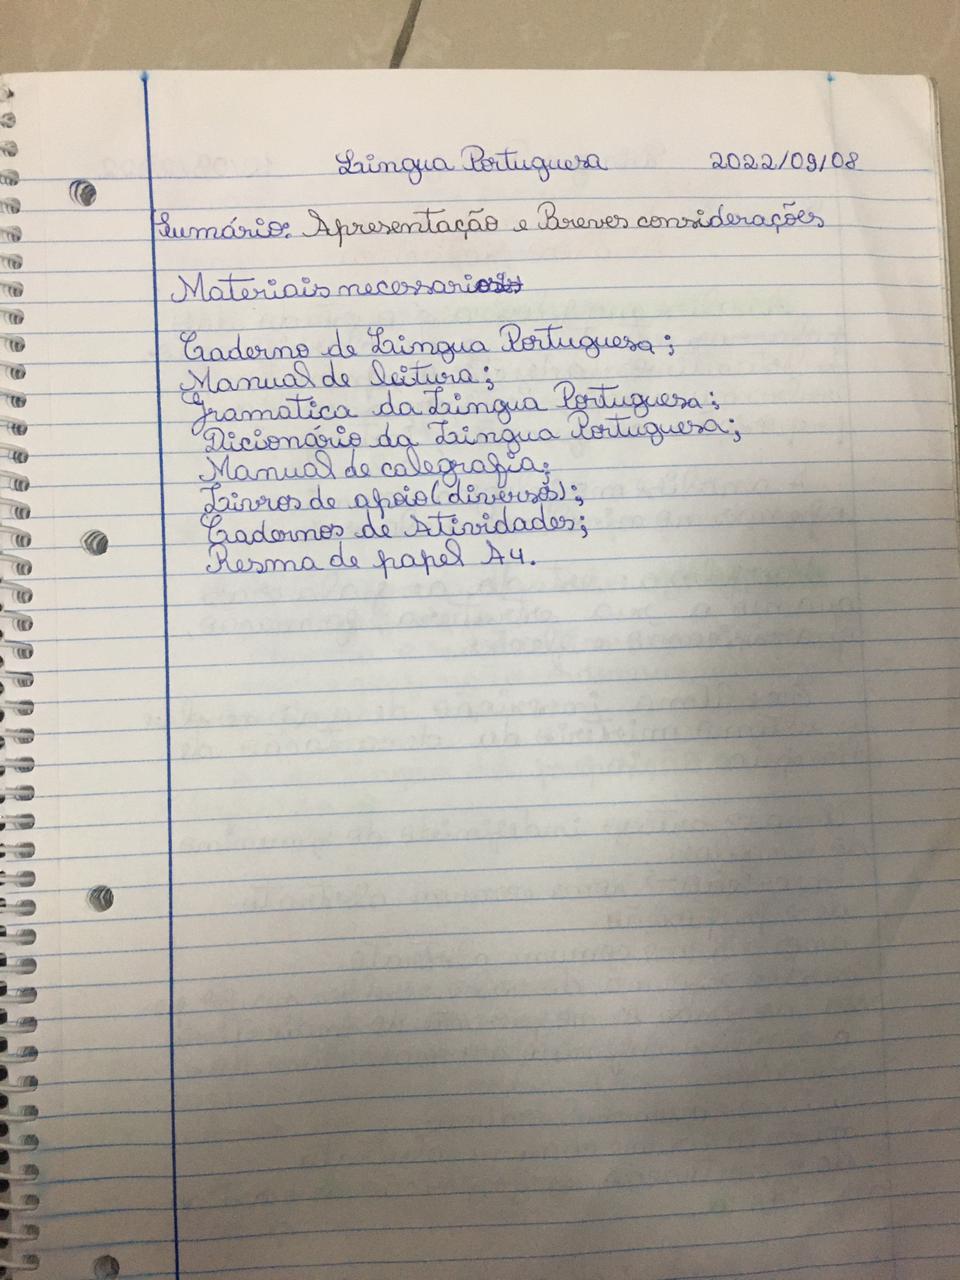 Língua Portuguesa 2022/09/08
Sumário: Apresentação e Breves considerações
Materiais necessarios
Caderno de Língua Portuguesa;
Manual de leitura;
Gramatica da Língua Portuguesa;
Dicionário da Língua Portuguesa;
Manual de calegrafia;
Livros de apoio (diversos);
Cadernos de Atividades;
Resma de papel A4.